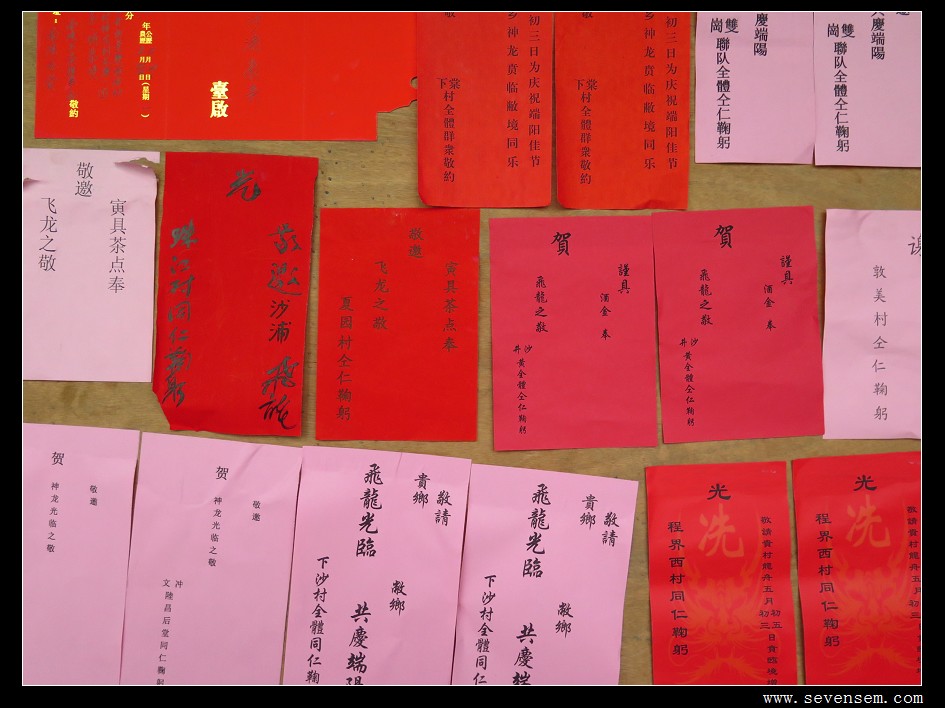 年
臺啟
敬約
初三日为庆祝端阳佳节
乡神龙贲临敝境同乐
下棠村全體群衆敬約
初三日为庆祝端阳佳节
乡神龙贲临敝境同乐
下棠村全體群衆敬約
慶端陽
雙崗聯队全體仝仁鞠躬
慶端陽
雙崗聯队全體仝仁鞠躬
敬邀
寅具茶点奉
飞龙之敬
光
敬邀沙浦飛龍
珠江村同仁鞠躬
敬邀
寅具茶点奉
飞龙之敬
夏园村仝仁鞠躬
賀
謹具
酒金 奉
飛龍之敬
沙井黄全體仝仁鞠躬
賀
謹具
酒金 奉
飛龍之敬
沙井黄全體仝仁鞠躬
敦美村仝仁鞠躬
贺
敬邀
神龙光临之敬
贺
敬邀
神龙光临之敬
冲文陸昌后堂同仁鞠躬
敬請
貴鄉
飛龍光臨
敝鄉
共慶端陽
下沙村全體同仁鞠
敬請
貴鄉
飛龍光臨
敝鄉
共慶端
下沙村全體同仁
光
冼
敬請貴村龍舟五月初五初三日食臨境
程界西村同仁鞠躬
光
冼
敬請貴村龍舟五月初
程界西村同仁鞠躬
www.sevensem.com